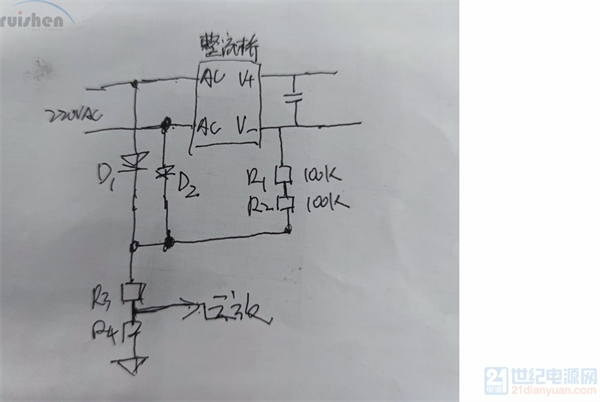 ruishen
整流桥
AC V+
220VAC
AC V-
D1
D2
R1 100K
R2 100K
R3
R4
21世纪电源网
21dianyuan.com